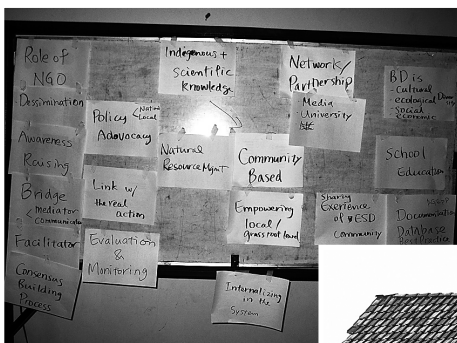 Role of
NGO
Dessimination
Awareness
Rousing
Bridge
mediator
communicator
Facilitator
Consensus
Building
Process
Policy
Local
Advocacy
Link w/
the real
action
Evaluation
&
Monitoring
Indigenous +
Scientific
Knowledge
Natural
Resource Mgmt
Community
Based
Empowering
local /
grass root level
Internalizing
in the
System
Network/
Partnership
Media
University
Sharing
Exerience
of ESD
Community
BD is
- Cultural
ecological
social
economic
School
Education
Documentation
Database
Best Practice